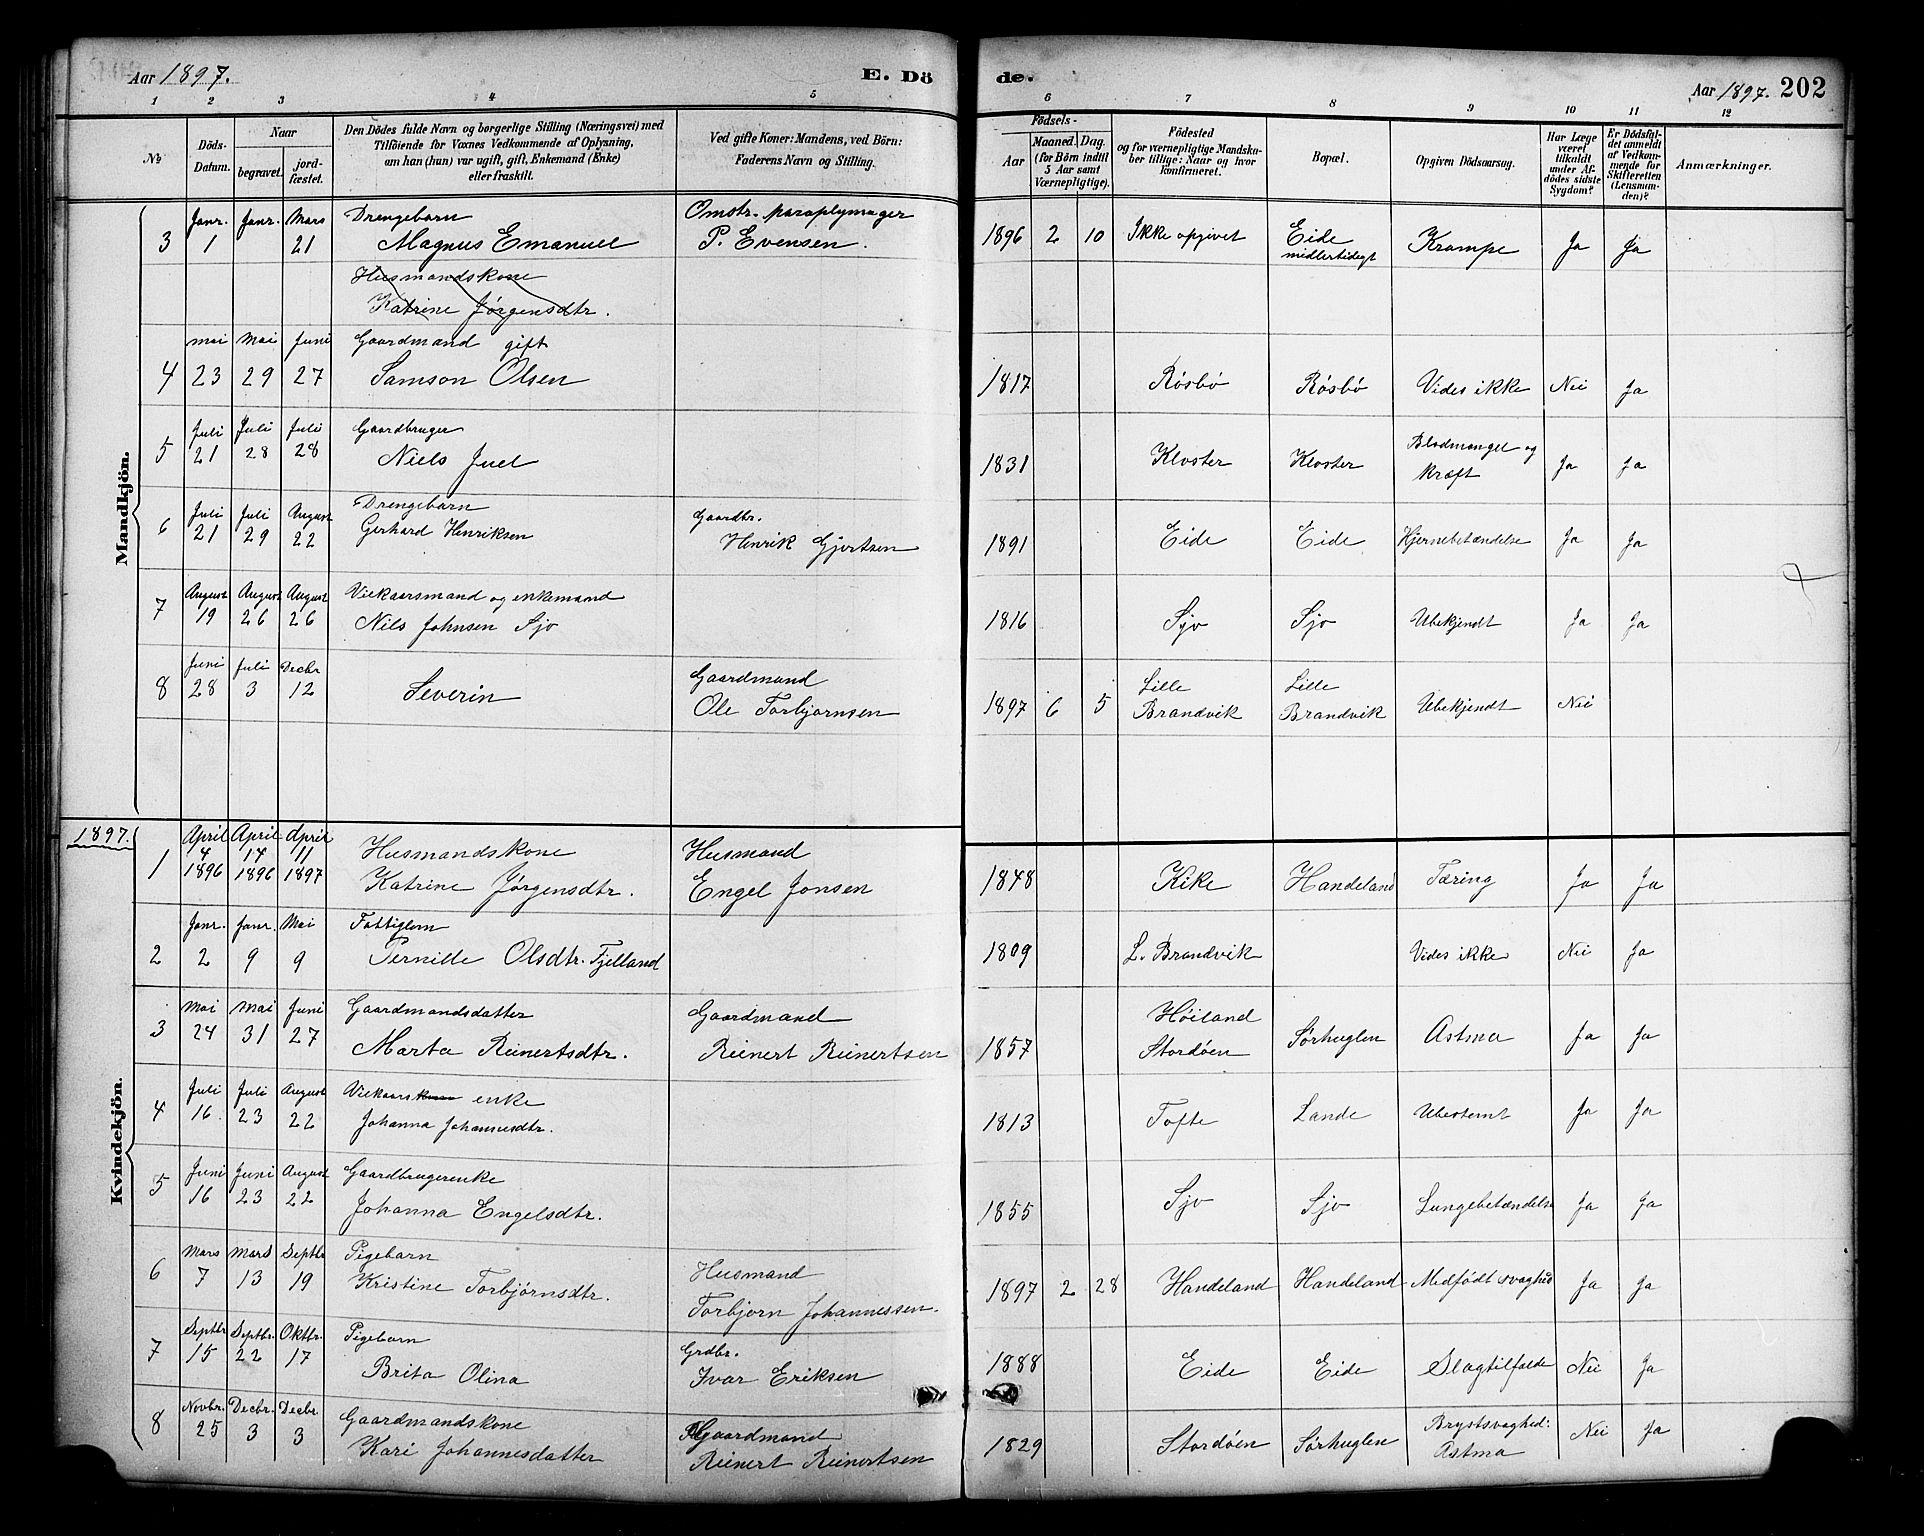 Aar 1897. E. Dö de. Aar 1897. 202
1 2 3 4 5 6 7 8 9 10 11 12
No
Döds-Datum.
Naar
begravet.
jord-fæstet.
Den Dödes fulde Navn og borgerlige Stilling (Næringsvei) med
Tilföiende for Voxnes Vedkommende af Oplysning,
om han (hun) var ugift, gift, Enkemand (Enke)
eller fraskilt.
Ved gifte Koner: Mandens, ved Börn:
Faderens Navn og Stilling.
Födsels-
Aar
Maaned. Dag.
(for Börn indtil
5 Aar samt
Værnepligtige).
Födested
og for værnepligtige Mandska-
ber tillige: Naar og hvor
konfirmeret.
Bopæl.
Opgiven Dödsaarsag.
Har Læge
været
tilkaldt
under Af-
dödes sidste
Sygdom?
Er Dödsfal-
det anmeldt
af Vedkom-
mende for
Skifteretten
(Lensman-
den)?
Anmærkninger.
Mandkjön.
Janr. Janr. Mars Drengebarn Omstr. paraplymager
3 1 21 Magnus Emanuel P. Evensen. 1896 2 10 Ikke opgivet Eide midlertidigt Krampe Ja Ja
Husmandskone
Katrine Jørgensdtr.
Mai Mai Juni Gaardmand gift
4 23 29 27 Samson Olsen 1817 Røsbø Røsbø Vides ikke Nei Ja
Juli Juli Juli Gaardbruger
5 21 28 28 Niels Juel 1831 Kloster Kloster Blodmangel og kræft Ja Ja
Juli Juli August Drengebarn Gaardbr.
6 21 29 22 Gerhard Henriksen Henrik Gjertsen 1891 Eide Eide Hjernebetændelse Ja Ja
August August August Vilkaarsmand og enkemand
7 19 26 26 Nils Johnsen Sjo 1816 Sjo Sjo Ubekjendt Ja Ja
Juni Juli Decbr Gaardmand Lille Lille
8 28 3 12 Severin Ole Torbjornsen 1897 6 5 Brandvik Brandvik Ubekjendt Nei
1897.
Kvindekjön.
April April April Husmandskone Husmand
1 4 14 11
1896 1896 1897 Katrine Jørgensdtr. Engel Jonsen 1848 Kike Handeland Tæring Ja Ja
Janr. Janr. Mai Fattiglem
2 2 9 9 Pernille Olsdtr. Fjelland 1809 L. Brandvik Vides ikke Nei Ja
Mai Mai Juni Gaardmandsdatter Gaardmand Høiland
3 24 31 27 Marta Reinertsdtr. Reinert Reinertsen 1857 Stordøen Sørhuglen Astma Ja Ja
Juli Juli August Vilkaarskone enke
4 16. 23 22 Johanna Johannesdtr. 1813 Tofte Lande Ubestemt Ja Ja
Juni Juni August Gaardbrugerenke
5 16 23 22 Johanna Engelsdtr. 1855 Sjo Sjo Lungebetændelse Ja Ja
Mars Mars Septbr Pigebarn Husmand
6 7 13 19 Kristine Torbjørnsdtr. Torbjorn Johannessen. 1897 2 28 Handeland Handeland Medfødt svaghed Ja Ja
Septbr Septbr. Oktbr. Pigebarn Grdbr.
7 15 22 17 Brita Olina Ivar Eriksen 1888 Eide Eide Slagtilfælde Nei Ja
Novbr. Decbr. Decbr. Gaardmandskone Gaardmand Brystsvaghed:
8 25 3 3 Kari Johannesdatter Reinert Reinertsen 1829 Stordøen Sørhuglen Astma Nei Ja